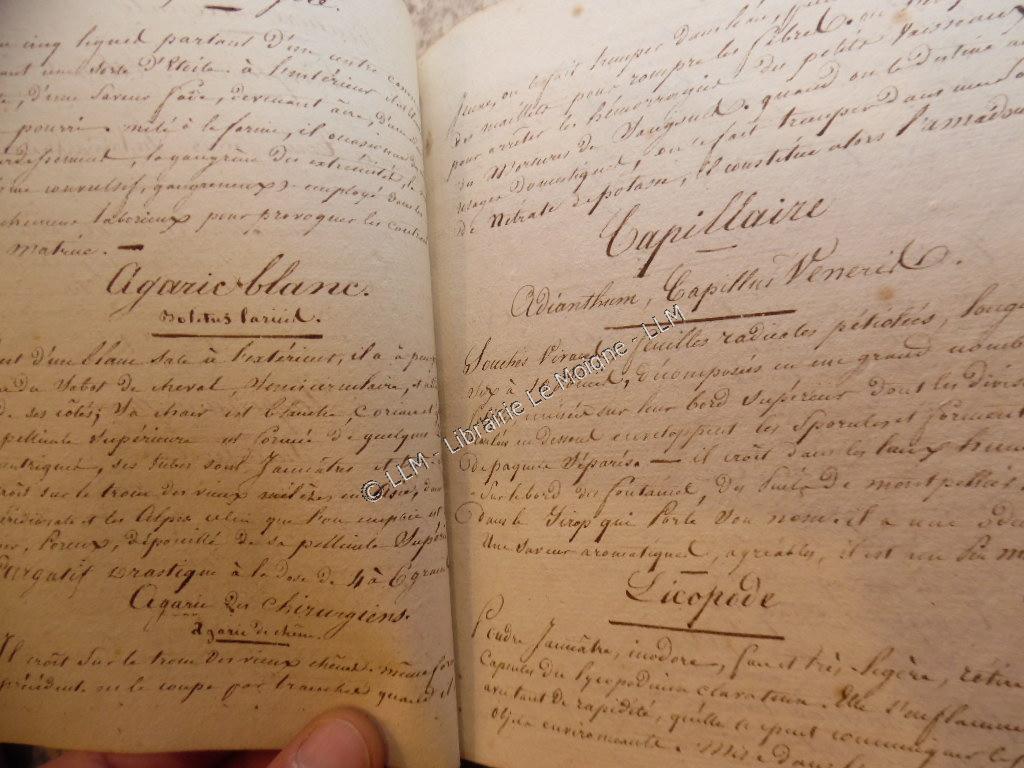 cinq lignes partant d'un centre
une sorte d'Etoile à l'intérieur
d'une saveur fade, devenant âcre, d'une
pourri. mêlé à la farine, il occasionne
la gangrène des extrémités
convulsif, gangreneux. employé dans les
laborieux pour provoquer les
matrice. —
Agaric blanc.
Boletus laricis.
d'un blanc sale à l'extérieur, il a à peu
du Sabot de cheval, et
de ses côtés; sa chair est blanche, coriace et
pellicule Supérieure est formée de quelques
ses tubes sont Jaunâtres
sur le tronc des vieux mélèzes en Asie, dans
et les Alpes celui que l'on emploie est
Poreux, dépouillé de sa pellicule Supér
Purgatif Drastique à la dose de 4 à 6 grains
Agaric des chirurgiens.
Agaric de chêne.
Il croît sur le tronc des vieux chênes même
précédent on le coupe par tranches quand il
on les fait tremper dans l'eau,
des maillets pour rompre les fibres. on
pour arrêter les hémorragies des petits vaisseaux
Morsures de Sangsues. quand on le destine
usages Domestiques, on le fait tremper dans une
de Nitrate de potasse, il constitue alors l'amadou
Capillaire
Adianthum, Capillus Veneris.
Souches vivaces feuilles radicales pétiolées, longues
à décomposées en un grand nombre
sur leur bord Supérieur dont les divis
en dessous enveloppent les Sporules et forment
de paquets Séparés. — il croît dans les lieux hum
Sur le bord des fontaines, des puits de montpellier
dans le Sirop qui Porte Son nom. il a une od
Une saveur aromatiques, agréables, il est
Licopode
Poudre Jaunâtre, inodore, fine et très légère, retirée
Capsules du lycopodium clavatum. Elle s'enflamme
avec tant de rapidité, qu'elle ne peut communiquer
objets environnants. Mis dans
© LLM - Librairie Le Moigne - LLM